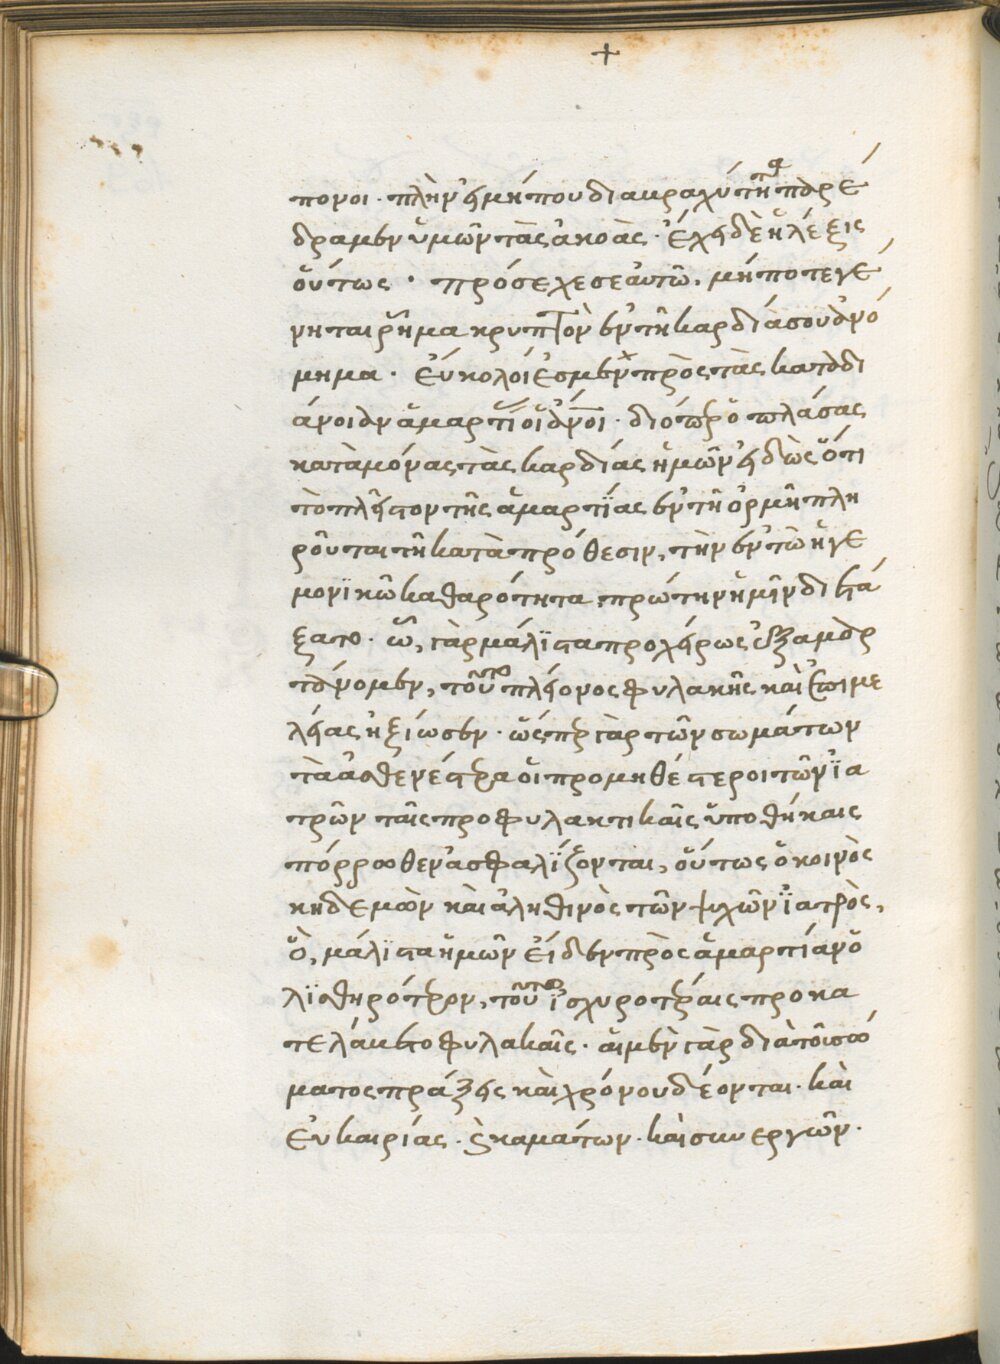 +
πονοι · πλὴν εἰ μή που διὰ βραχύτητα παρέ
δραμεν ὑμῶν τὰς ἀκοάς · ἔχει δὲ ἡ λέξις
οὕτως · πρόσεχε σεαυτῶ, μήποτε γέ
νηται ῥῆμα κρυπτὸν ἐν τῆ καρδία σου ἀνό
μημα · εὔκολοί ἐσμεν πρὸς τὰς κατὰ δι
άνοιαν ἁμαρτίας οἱ ἄνοι · διόπερ ὁ πλάσας
καταμόνας τὰς καρδίας ἡμῶν εἰδὼς ὅτι
τὸ πλεῖστον τῆς ἁμαρτίας ἐν τῆ ὁρμῆ πλη
ροῦται τῆ κατὰ πρόθεσιν, τὴν ἐν τῶ ἡγε
μονικῶ καθαρότητα πρώτην ἡμῖν διετά
ξατο · ὧ, γὰρ μάλιστα προχείρως ἐξαμαρ
τάνομεν, τοῦτο πλείονος φυλακῆς καὶ ἐπιμε
λείας ἠξίωσεν · ὥσπερ γὰρ τῶν σωμάτων
τὰ ἀσθενέστερα οἱ προμηθέστεροι τῶν ἰα
τρῶν ταῖς προφυλακτικαῖς ὑποθήκαις
πόρρωθεν ἀσφαλίζονται, οὕτως ὁ κοινὸς
κηδεμὼν καὶ ἀληθινὸς τῶν ψυχῶν ἰατρὸς,
ὃ, μάλιστα ἡμῶν εἶδεν πρὸς ἁμαρτίαν ὀ
λισθηρότερον, τοῦτο ἰσχυροτέραις προκα
τελάβετο φυλακαῖς · αἱ μὲν γὰρ διὰ τοῦ σώ
ματος πράξεις καὶ χρόνου δέονται · καὶ
εὐκαιρίας · ϗ καμάτων · καὶ συνεργῶν ·